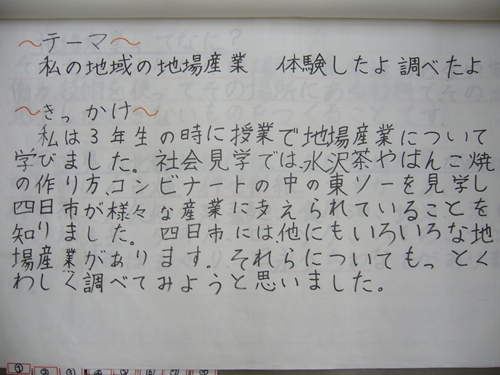 ～テーマ～
私の地域の地場産業　体験したよ 調べたよ
～きっかけ～
私は３年生の時に授業で地場産業について
学びました。社会見学では、水沢茶やばんこ焼
の作り方、コンビナートの中の東ソーを見学し
四日市が様々な産業に支えられていることを
知りました。四日市には、他にもいろいろな地
場産業があります。それらについてもっとく
わしく調べてみようと思いました。
① ② ③ ④ ⑤ ⑥ ⑦ ⑧